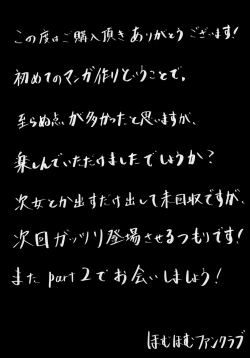 この度はご購入頂きありがとうございます!
初めてのマンガ作りということで。
至らぬ点が多かったと思いますが、
楽しんでいただけましたでしょうか?
次女とか出すだけ出して未回収ですが、
次回ガッツリ登場させるつもりです!
また part 2 でお会いしましょう!
ほむほむファンクラブ